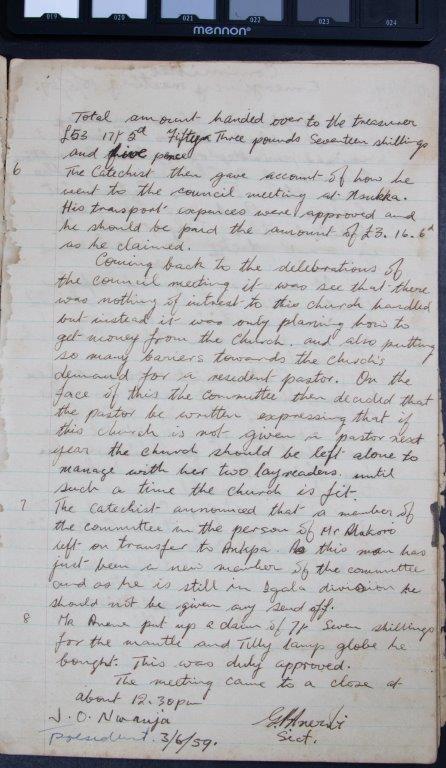 019 020 021 022 023 024
mennon
Total amount handed over to the treasurer
£53 17/ 5d Fifteen Three pounds Seventeen shillings
and five pence
6 The Catechist then gave account of how he
went to the council meeting at Nsukka.
His transport expences were approved and
he should be paid the amount of £3. 16. 6d
as he claimed.
Coming back to the deleberations of
the council meeting it was see that there
was nothing of intrest to this church handled
but instead it was only planing how to
get money from the Church. and also putting
so many bariers towards the church's
demand for a resident pastor. On the
face of this the committee then decided that
the pastor be written expressing that if
this church is not given a pastor next
year the church should be left alone to
manage with her two layreaders. until
such a time the church is fit.
7 The catechist announced that a member of
the committee in the person of Mr
left on transfer to Ankpa. As this man has
just been a new member of the committee
and as he is still in Igala division he
should not be given any send off.
8 Mr Anene put up a claim of 7/- Seven shillings
for the mantle and Tilly lamp globe he
bought. This was duly approved.
The meeting came to a close at
about 12.30pm
J. O. Nwanja
president. 3/6/59. Sect.